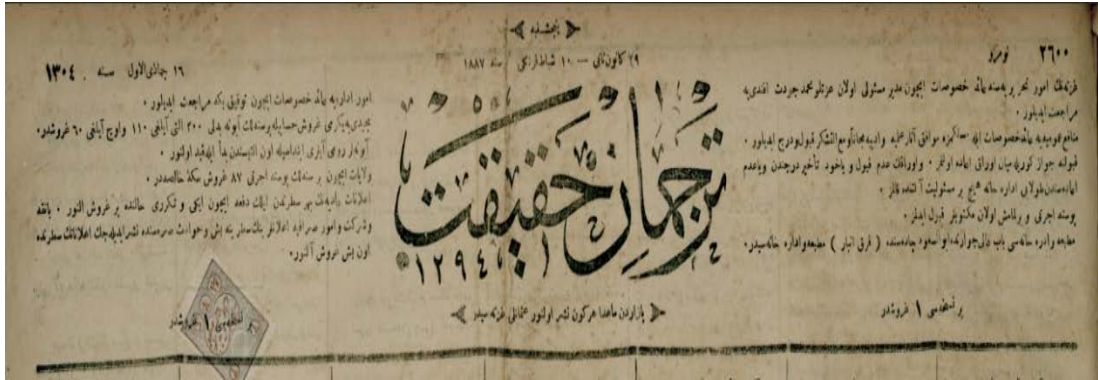 پنجشنبه
٢٩ كانون ثانى — ١٠ شباط فرنكى سنه ١٨٨٧
٢٦٠٠ نومرو
١٦ جماذى الاول سنه ١٣٠٤
غزته‌نك امور تحريريه‌سنه عائد خصوصات ايچون مدير مسئولى اولان عزتلو محمد جودت افندى‌يه
مراجعت ايديلور ٠
منافع عموميه‌يه عائد خصوصات ايله مسلكمزه موافق آثار علميه وادبيه مجاناً ومع التشكر قبول ودرج ايديلور ٠
قبولنه جواز كوريله‌ميان اوراق اعاده اولنماز ٠ واوراقك عدم قبول وياخود تأخير درجندن وياعدم
اعاده‌سندن طولايى اداره خانه هيچ بر مسئوليت آلتنده قالماز ٠
پوسته اجرتى ويرلمامش اولان مكتوبلر قبول ايدلمز ٠
مطبعه واداره خانه‌سى باب عالى جوارنده ابوالسعود جاده‌سنده ( قرق انبار ) مطبعه واداره خانه‌سيدر ٠
بر نسخه‌سى ١ غروشدر
ترجمان حقيقت
١٢٩٤
بازاردن ماعدا هركون نشر اولنور عثمانلى غزته‌سيدر
امور اداره‌يه عائد خصوصات ايچون توفيق بكه مراجعت ايديلور ٠
مجيدى يكرمى غروش حسابيله برسنه‌لك آبونه بدلى ٢٠٠ التى آيلغى ١١٠ واوچ آيلغى ٦٠ غروشدر ٠
آبونه‌لر رومى آيلرى ابتداسيله اون التيسندن بدأ ايله قيد اولنور ٠
ولايات ايچون بر سنه‌لك پوسته اجرتى ٨٧ غروش سكه خالصه‌در ٠
اعلانات عاديه‌نك بهر سطرندن ايلك دفعه ايچون ايكى و تكررى حالنده بر غروش النور ٠ بانقه
وشركت وامور صرافيه اعلانلرينك سطرينه بش وحوادث صره‌سنده نشر ايديله‌جك اعلاناتك سطرندن
اون بش غروش آلنور ٠
بر نسخه‌سى ١ غروشدر